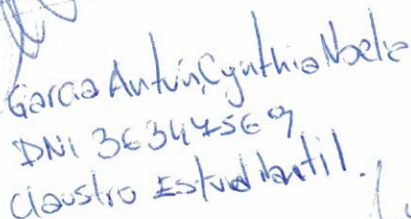 Garcia Antún, Cynthia Noelia
DNI 36347569
Claustro Estudiantil.